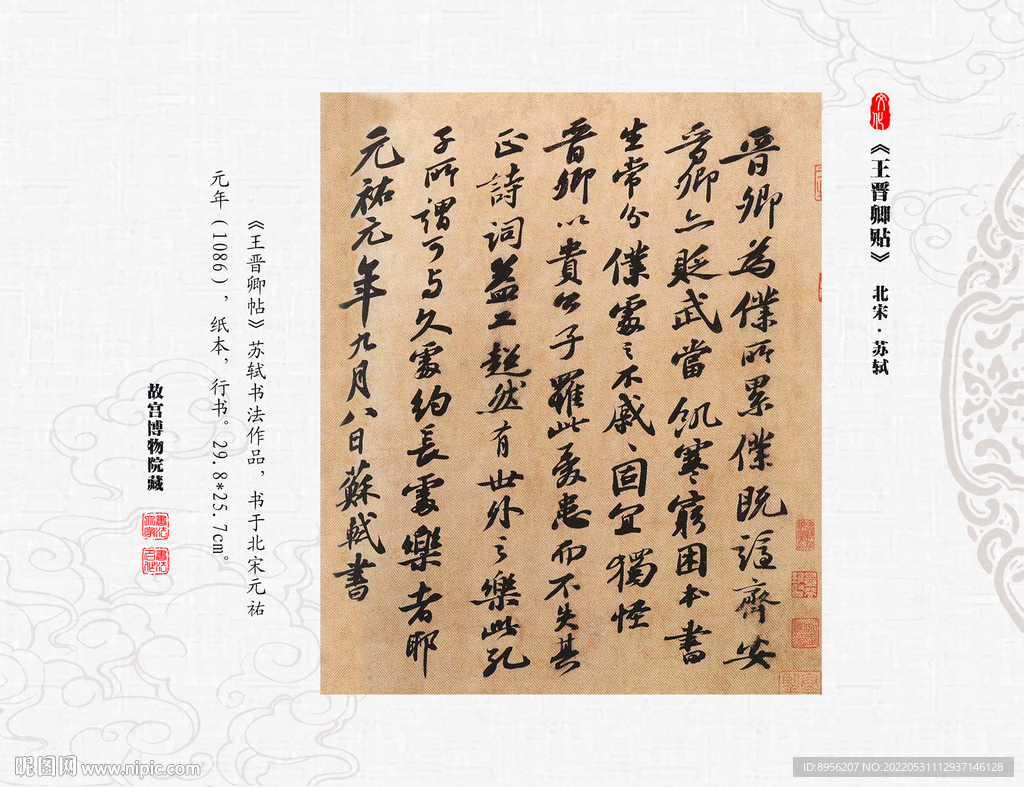 文化
《王晋卿贴》 北宋·苏轼
晉卿為僕所累僕既謫齊安
晉卿亦貶武當飢寒窮困本書
生常分僕處之不戚、固宜獨怪
晉卿以貴公子罹此憂患而不失其
正詩詞益工超然有世外之樂此孔
子所謂可与久處約長處樂者耶
元祐元年九月八日蘇軾書
《王晋卿帖》苏轼书法作品，书于北宋元祐
元年（1086），纸本，行书。29.8*25.7cm。
故宫博物院藏
書法
書法
昵图网 www.nipic.com
ID:8956207 NO:20220531112937146128